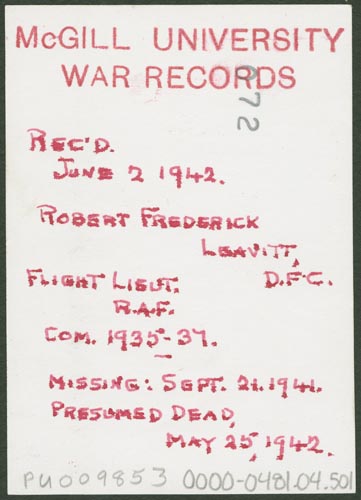 McGILL UNIVERSITY
WAR RECORDS
672
REC'D.
JUNE 2 1942.
ROBERT FREDERICK
LEAVITT,
FLIGHT LIEUT. D.F.C.
R.A.F.
COM. 1935-37.
MISSING: SEPT. 21. 1941.
PRESUMED DEAD,
MAY 25, 1942.
PU009853 0000-0481.04.501